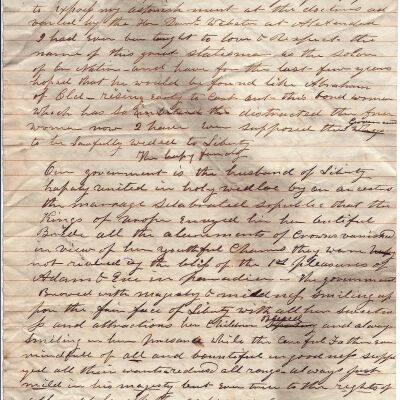 to Expose my astonishment at the doctrine ad
vanced by the Hon Danl. Webster at Alexandria
I had Ever been taught to love & Respect the
name of this great statesman as the Solon
of our Nation - and have for the last few years
hoped that he would be found like Abraham
of Old - rising early to Cast out this bond woman
which has so distracted the free
woman now I have ever supposed the Government
to be lawfully weded to Liberty
The happy family
Our government is the husband of Liberty
hapaly united in holy wedlock by our ancestors
the marriage Selabrated so publick that the
Kings of Europe Enveyed him her butiful
Bride all the alurements of Crowns vanished
in view of her youthful Charms they were
not rivaled by the bliss of the 1st pleasures of
Adam & Eve in paradice - The government
Browed with magesty & mildness Smiling up
pon the fair face of Liberty with all her sweetness
ss and attractions her Children and always
Smiling in her presance while the Careful Father Ever
mindful of all and bountiful in goodness supp
yed all their wants redresed all rongs - always just
mild in his magesty but Ever true to the rights of